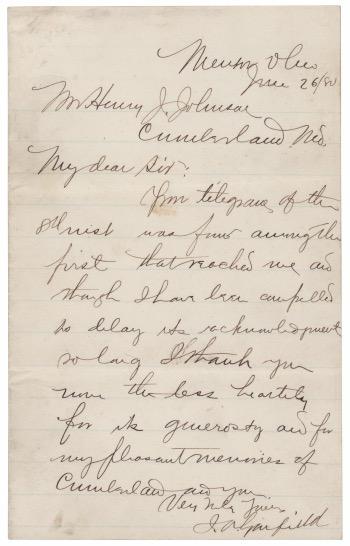 Mentor Ohio
June 26/80
Mr Henry J. Johnson
Cumberland Md.
My dear Sir:
Your telegram of the
8th inst was found among the
first that reached me and
though I have been compelled
to delay its acknowledgment
so long I thank you
none the less heartily
for its generosity and for
my pleasant memories of
Cumberland and you
Very truly Yours
J. A. Garfield